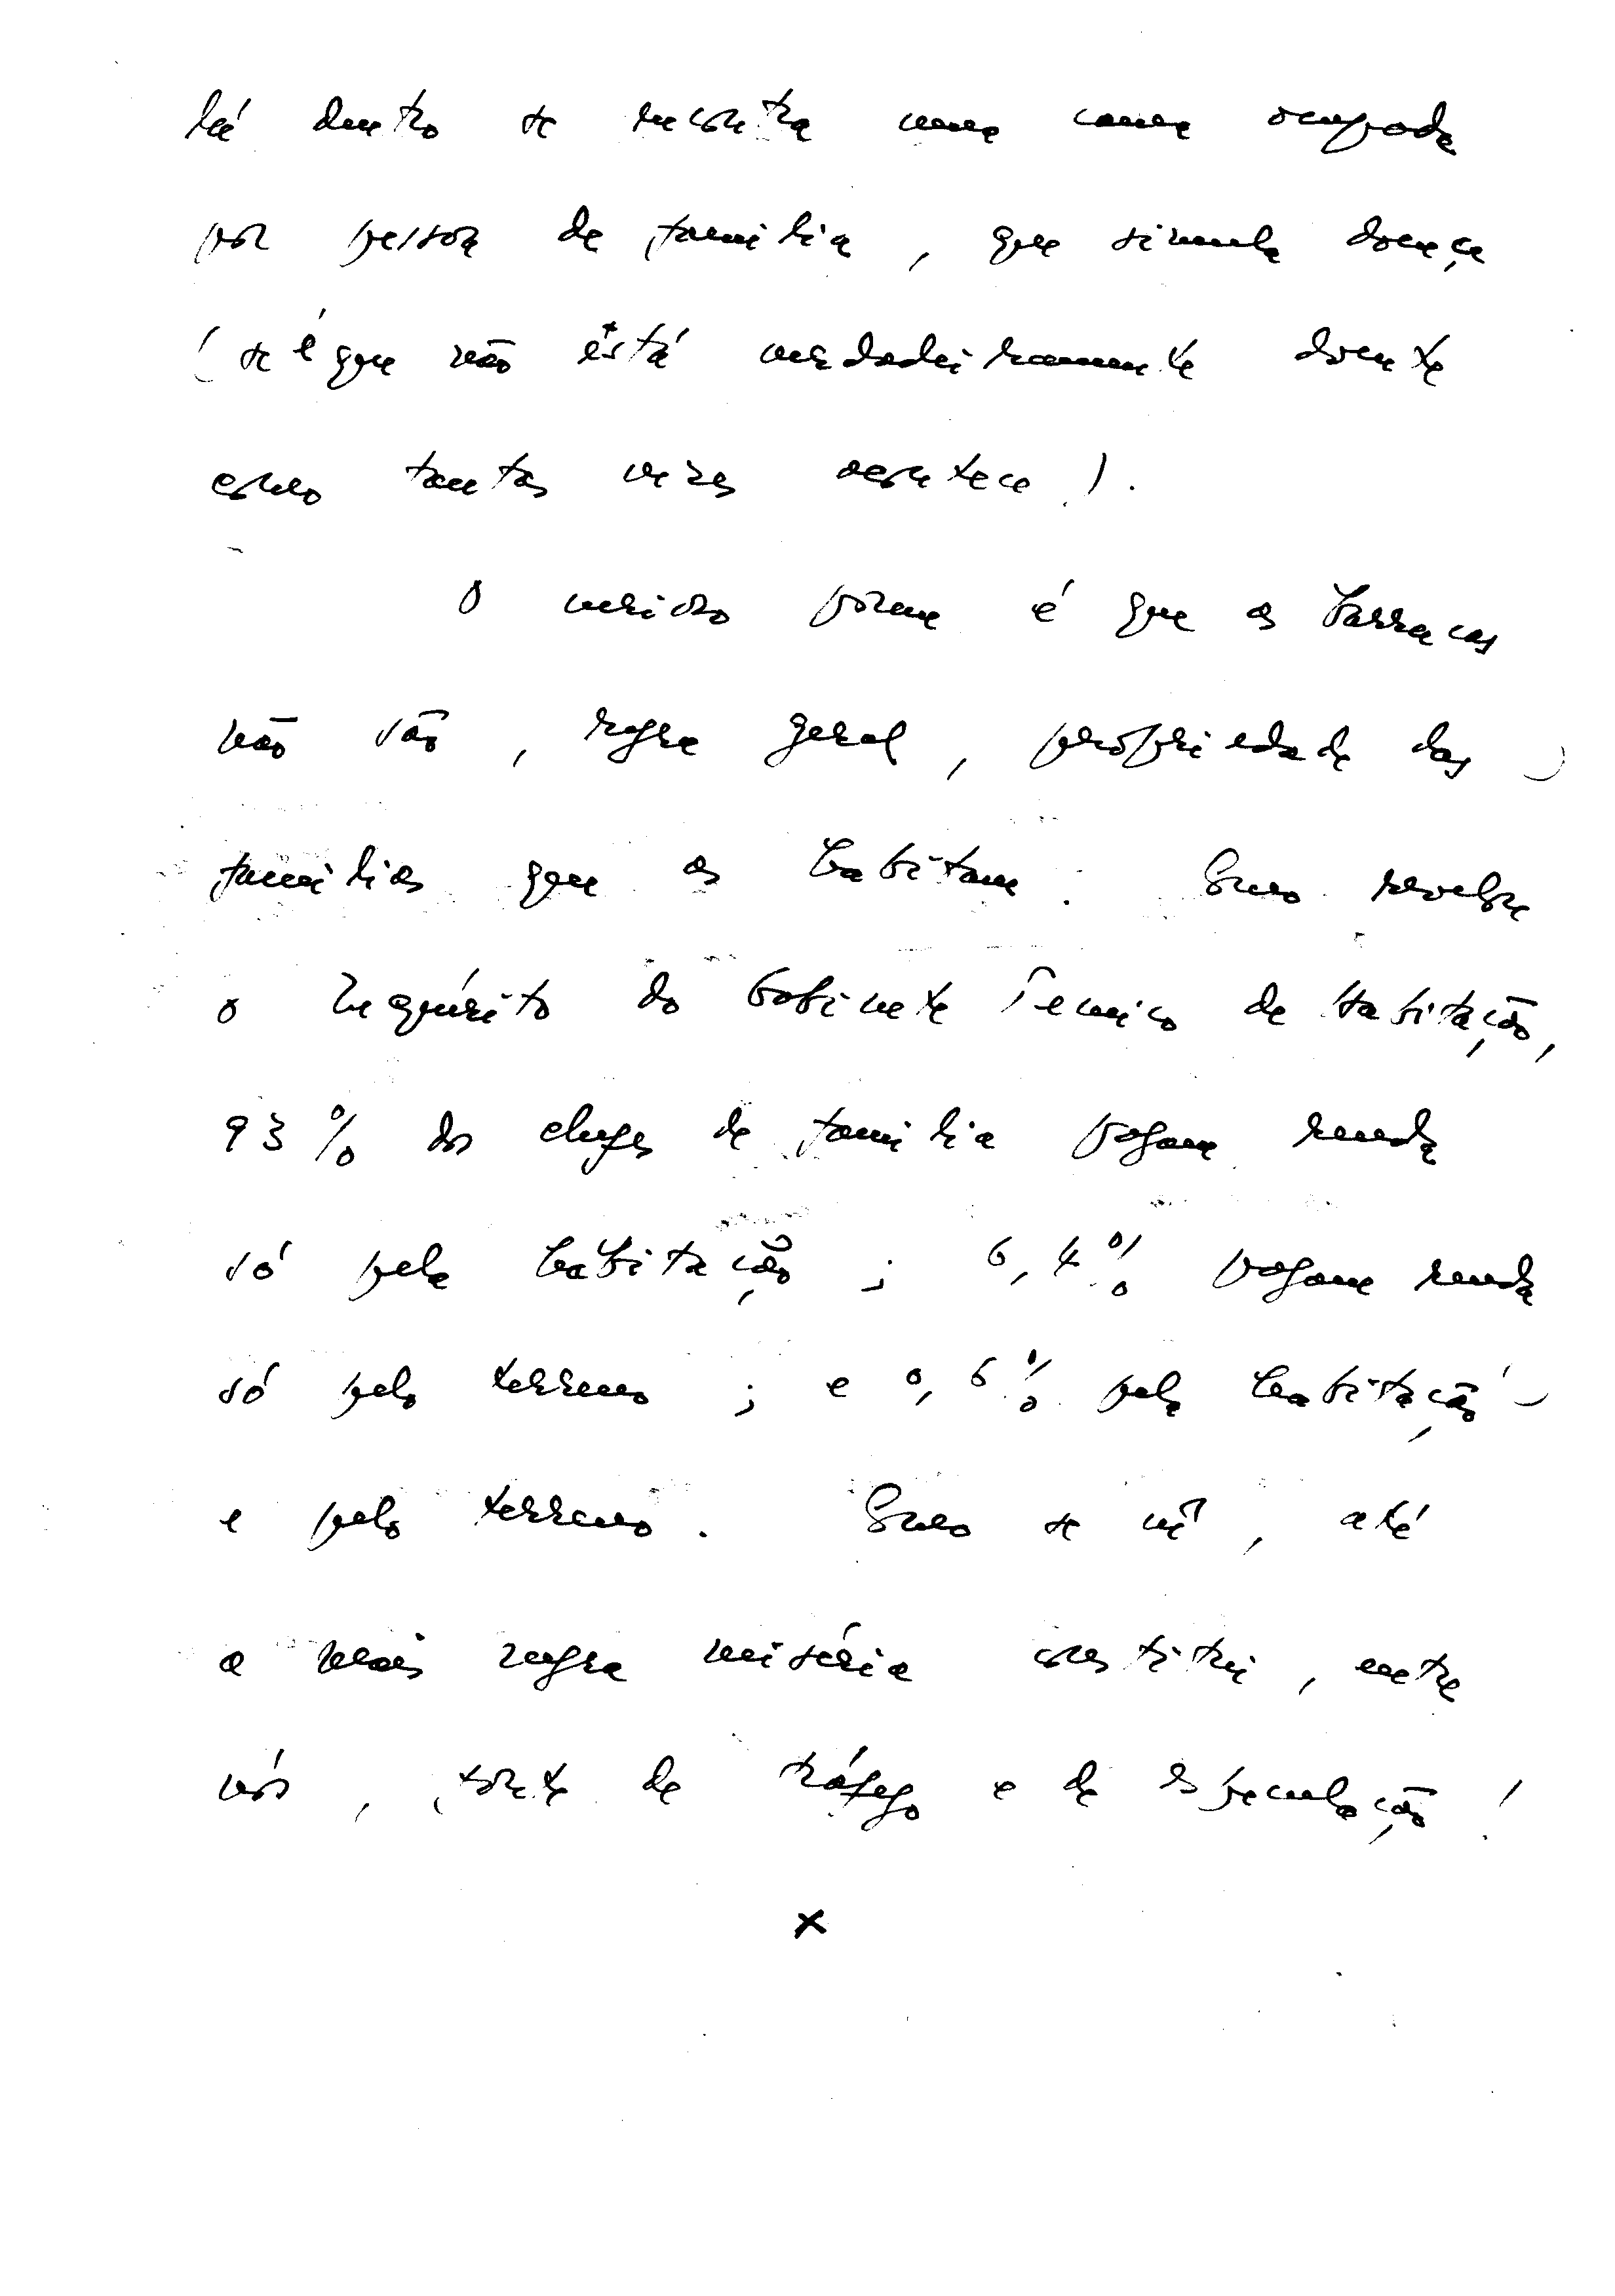 lá dentro se encontra uma cama ocupada
por pessoa de familia, que simula doença
(se é que não está verdadeiramente doente
como tantas vezes acontece).
O curioso porem é que as barracas
não são, regra geral, propriedade das
familias que as habitam. Como revelou
o Inquérito do Gabinete Tecnico de Habitação,
93% dos chefes de familia pagam renda
só pela habitação; 6,4% pagam renda
só pelo terreno; e 0,6% pela habitação
e pelo terreno. Como se vê, até
a mais negra miséria constitui, entre
nós, fonte de tráfego e de especulação!
x